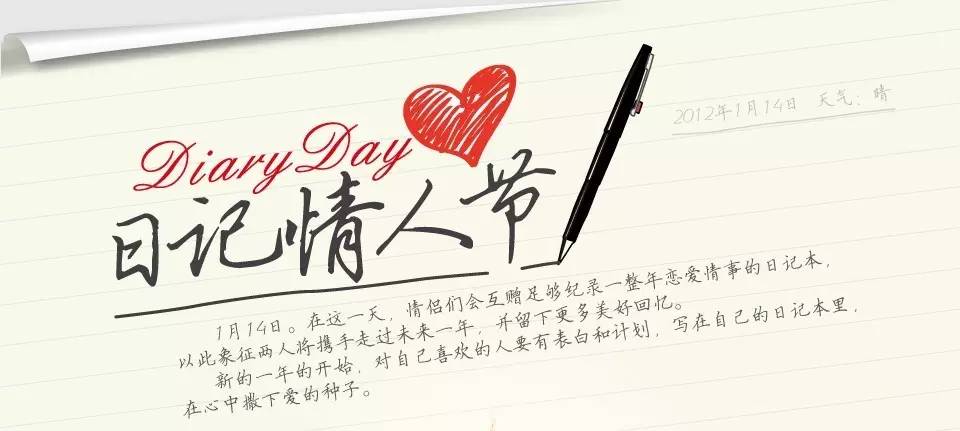 2012年1月14日 天气：晴
Diary Day
日记情人节
1月14日。在这一天，情侣们会互赠足够纪录一整年恋爱情事的日记本，
以此象征两人将携手走过未来一年，并留下更多美好回忆。
新的一年的开始，对自己喜欢的人要有表白和计划，写在自己的日记本里，
在心中撒下爱的种子。